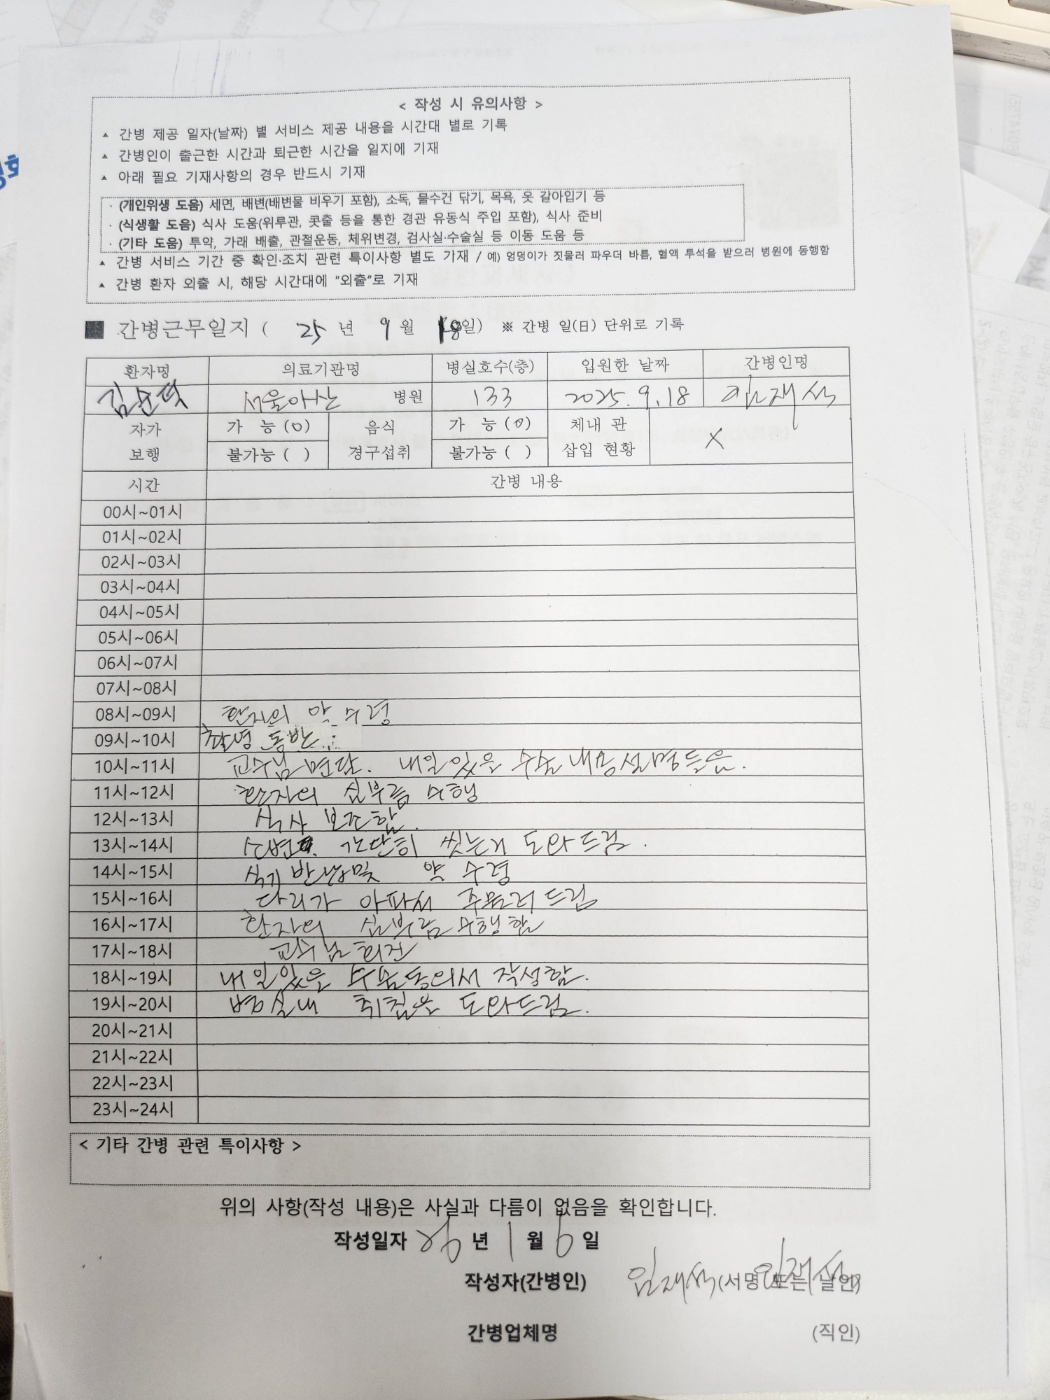 < 작성 시 유의사항 >
▲ 간병 제공 일자(날짜) 별 서비스 제공 내용을 시간대 별로 기록
▲ 간병인이 출근한 시간과 퇴근한 시간을 일지에 기재
▲ 아래 필요 기재사항의 경우 반드시 기재
· (개인위생 도움) 세면, 배변(배변물 비우기 포함), 소독, 물수건 닦기, 목욕, 옷 갈아입기 등
· (식생활 도움) 식사 도움(위루관, 콧줄 등을 통한 경관 유동식 주입 포함), 식사 준비
· (기타 도움) 투약, 가래 배출, 관절운동, 체위변경, 검사실·수술실 등 이동 도움 등
▲ 간병 서비스 기간 중 확인·조치 관련 특이사항 별도 기재 / 예) 엉덩이가 짓물러 파우더 바름, 혈액 투석을 받으러 병원에 동행함
▲ 간병 환자 외출 시, 해당 시간대에 "외출"로 기재
■ 간병근무일지 ( 25 년 9 월 18일) ※ 간병 일(日) 단위로 기록
환자명 의료기관명 병실호수(층) 입원한 날짜 간병인명
서울아산 병원 133 2025.9.18 임재석
자가 보행 가 능 (0) 불가능 ( ) 음식 경구섭취 가 능 (0) 불가능 ( ) 체내 관 삽입 현황 X
시간 간병 내용
00시~01시
01시~02시
02시~03시
03시~04시
04시~05시
05시~06시
06시~07시
07시~08시
08시~09시 환자의 약 수령
09시~10시 촬영 동반
10시~11시 교수님 면담. 내일있을 수술 내용설명들음.
11시~12시 환자의 심부름 수행
12시~13시 식사 보조함.
13시~14시 간단히 씻는거 도와드림.
14시~15시 식기반납및 약 수령
15시~16시 다리가 아파서 주물러드림
16시~17시 환자의 심부름 수행함
17시~18시 교수님 회진
18시~19시 내일있을 수술동의서 작성함.
19시~20시 병실내 취침을 도와드림.
20시~21시
21시~22시
22시~23시
23시~24시
< 기타 간병 관련 특이사항 >
위의 사항(작성 내용)은 사실과 다름이 없음을 확인합니다.
작성일자 26 년 1 월 6 일
작성자(간병인) 임재석 (서명 또는 날인) 임재석
간병업체명 (직인)